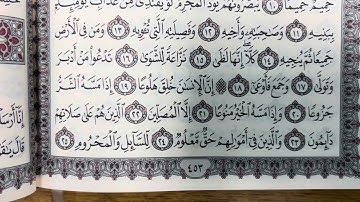 حَمِيمٌ حَمِيمًا ١٠ يُبَصَّرُونَهُمْ يَوَدُّ الْمُجْرِمُ لَوْ يَفْتَدِي مِنْ عَذَابِ يَوْمِئِذٍ
بِبَنِيهِ ١١ وَصَاحِبَتِهِ وَأَخِيهِ ١٢ وَفَصِيلَتِهِ الَّتِي تُؤْوِيهِ ١٣ وَمَن فِي الْأَرْضِ
جَمِيعًا ثُمَّ يُنجِيهِ ١٤ كَلَّا إِنَّهَا لَظَى ١٥ نَزَّاعَةً لِّلشَّوَى ١٦ تَدْعُوا مَنْ أَدْبَرَ
وَتَوَلَّى ١٧ وَجَمَعَ فَأَوْعَى ١٨ إِنَّ الْإِنسَانَ خُلِقَ هَلُوعًا ١٩ إِذَا مَسَّهُ الشَّرُّ
جَزُوعًا ٢٠ وَإِذَا مَسَّهُ الْخَيْرُ مَنُوعًا ٢١ إِلَّا الْمُصَلِّينَ ٢٢ الَّذِينَ هُمْ عَلَى صَلَاتِهِمْ
دَائِمُونَ ٢٣ وَالَّذِينَ فِي أَمْوَالِهِمْ حَقٌّ مَّعْلُومٌ ٢٤ لِّلسَّائِلِ وَالْمَحْرُومِ ٢٥
٤٥٣